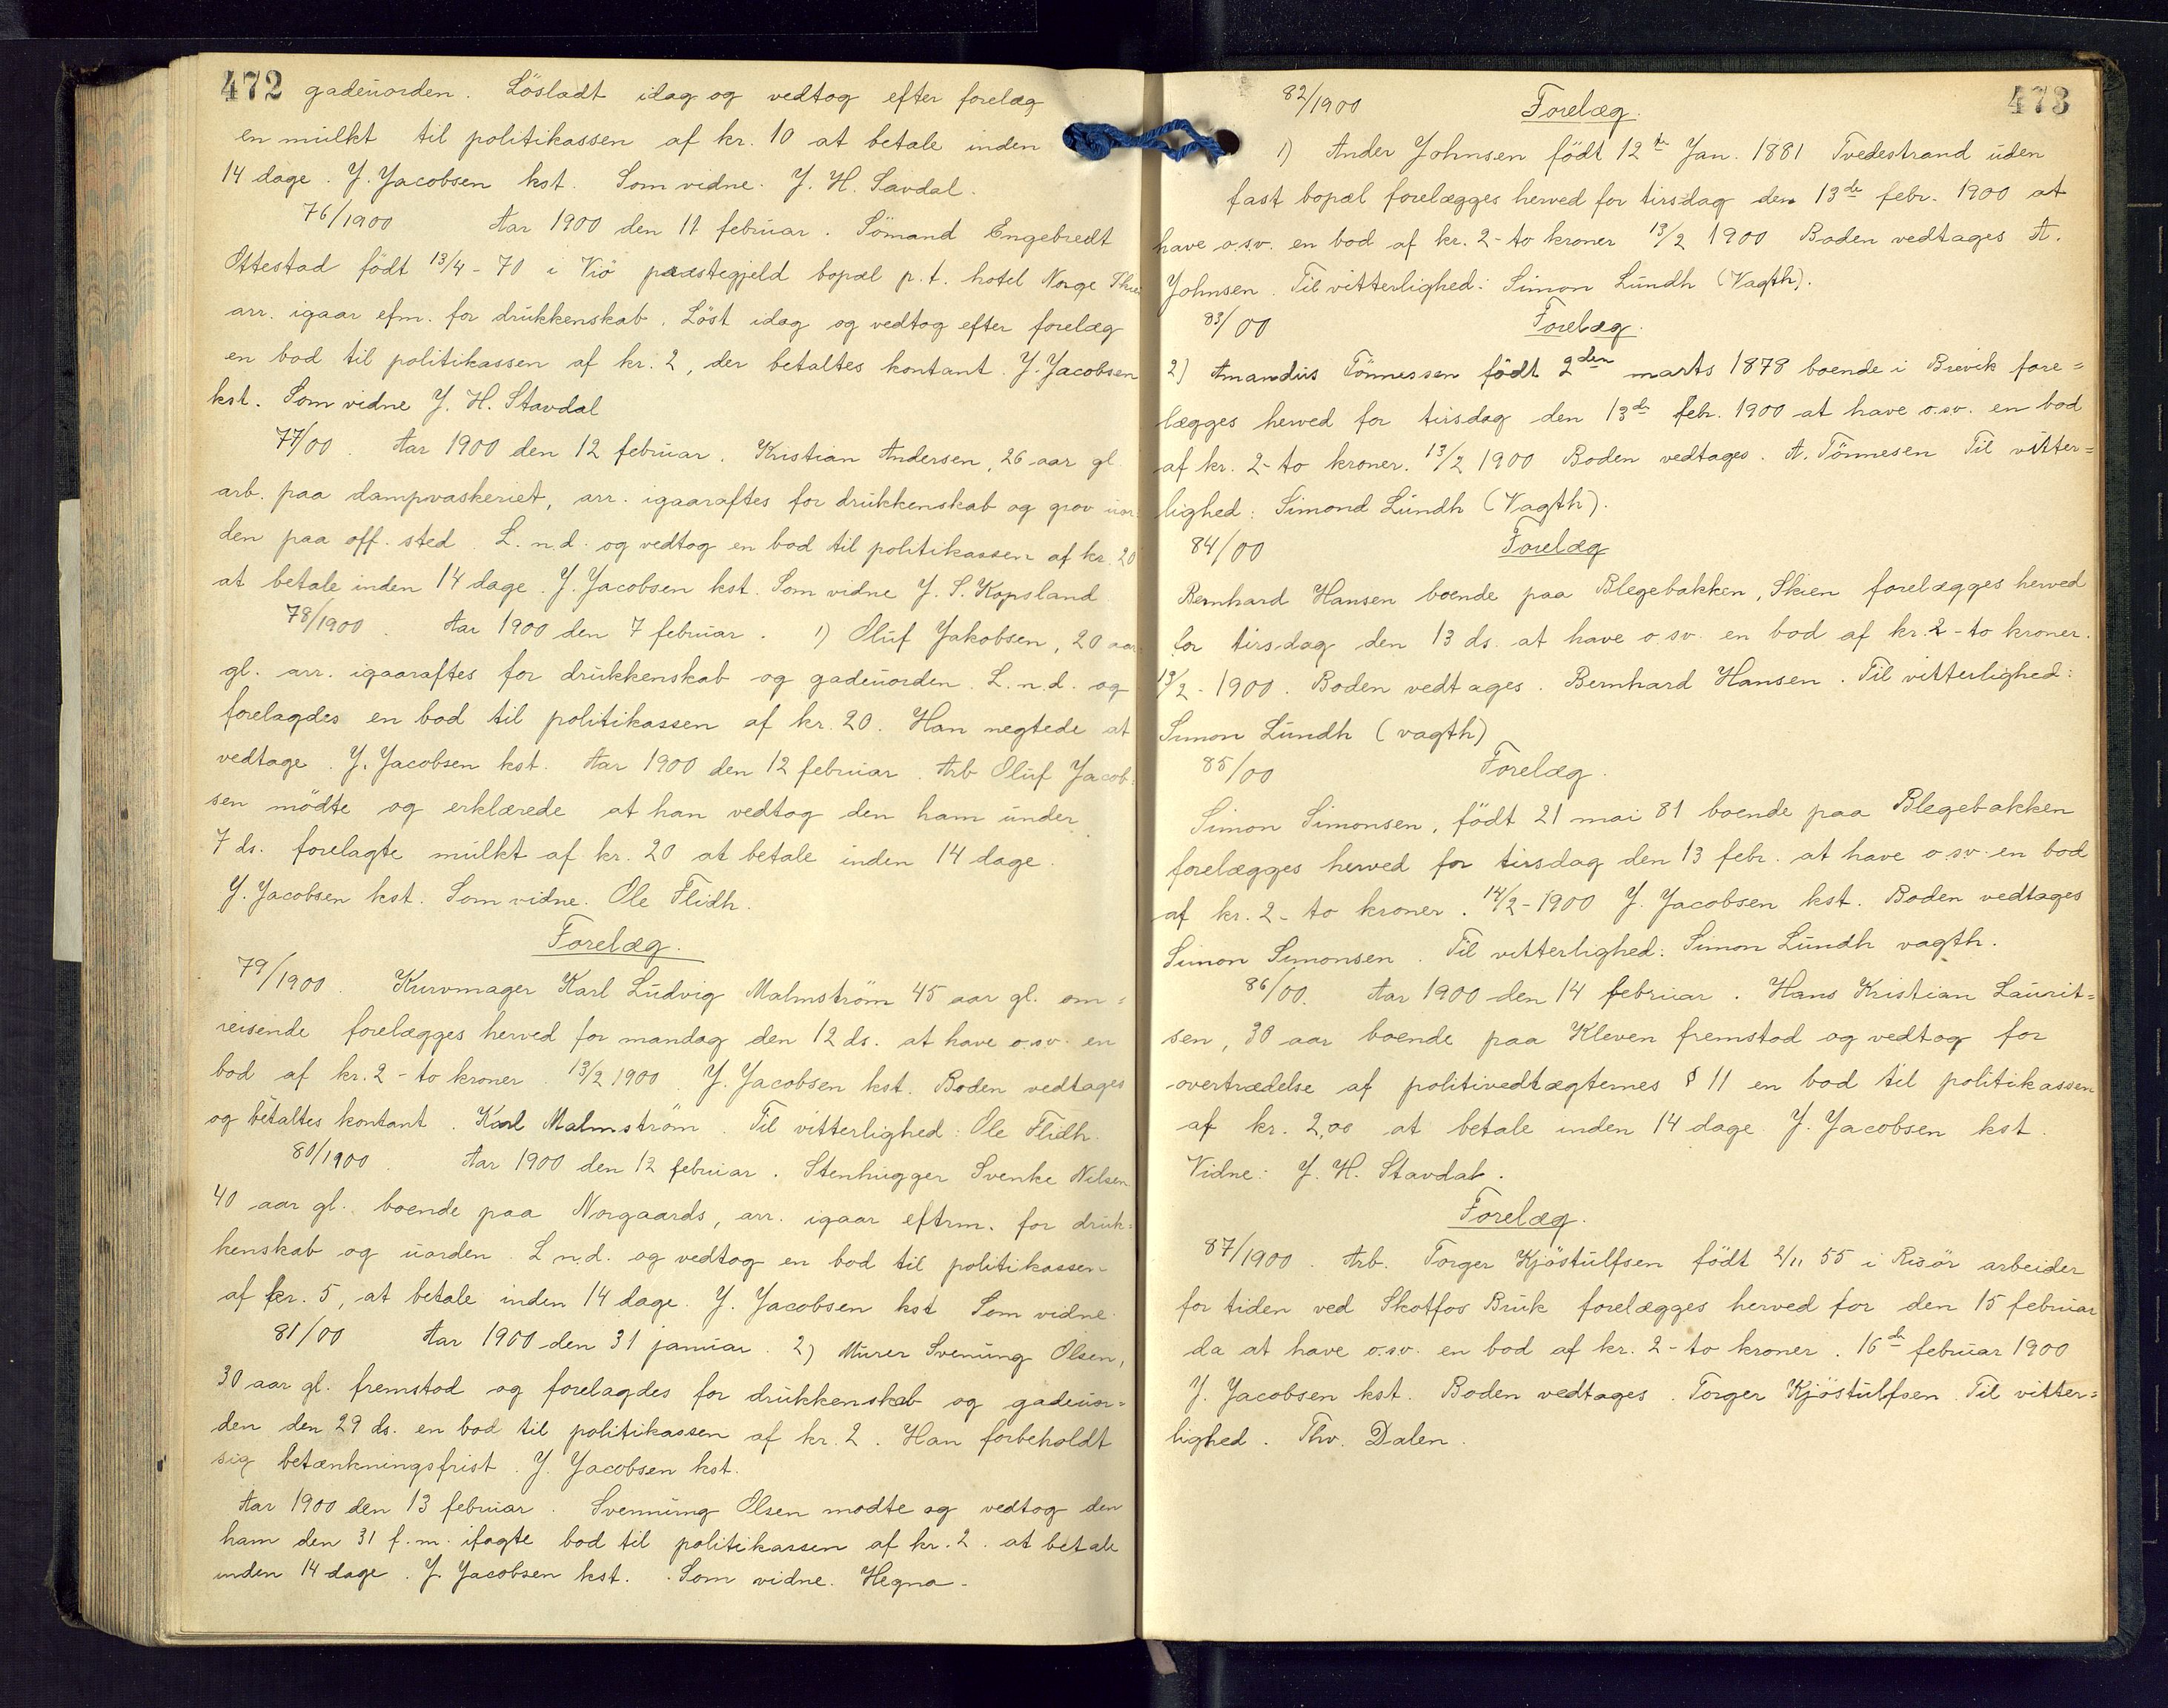 472 gadeuorden. Löslodt idag og vedtog efter forelæg
en mulkt til politikassen af kr. 10 at betale inden
14 dage. J. Jacobsen kst. Som vidne. J. H. Savdal.
76/1900 Aar 1900 den 11 februar. Sömand Engebredt
Ottestad födt 13/4-70 i Viö præstegjeld bopæl p.t. hotel Norge
arr. igaar efm. for drukkenskab. Löst idag og vedtog efter forelæg
en bod til politikassen af kr. 2, der betaltes kontant. J. Jacobsen
kst. Som vidne J. H. Stavdal
77/00. Aar 1900 den 12 februar. Kristian Andersen, 26 aar gl.
arb. paa dampvaskeriet, arr. igaaraftes for drukkenskab og grov uor
den paa off. sted. L. n. d. og vedtog en bod til politikassen af kr. 20
at betale inden 14 dage. J. Jacobsen kst. Som vidne J. S. Kopsland
78/1900. Aar 1900 den 7 februar. 1) Oluf Jakobsen, 20 aar
gl. arr. igaaraftes for drukkenskab og gadeuorden. L. n. d. og
forelagdes en bod til politikassen af kr. 20. Han negtede at
vedtage. J. Jacobsen kst. Aar 1900 den 12 februar. Arb Oluf Jacob-
sen mödte og erklærede at han vedtog den ham under
7 ds. forelagte mulkt af kr. 20 at betale inden 14 dage.
J. Jacobsen kst. Som vidne. Ole Flidh.
Forelæg.
79/1900. Kurvmager Karl Ludvig Malmström 45 aar gl. om=
reisende forelægges herved for mandag den 12 ds. at have o.s.v. en
bod af kr. 2 - to kroner. 13/2 1900. J. Jacobsen kst. Boden vedtages
og betaltes kontant. Karl Malmström. Til vitterlighed: Ole Flidh.
80/1900. Aar 1900 den 12 februar. Stenhugger Svenke Nilsen
40 aar gl. boende paa Norgaards, arr. igaar eftrm. for druk=
kenskab og uorden. L n. d. og vedtog en bod til politikassen
af kr. 5, at betale inden 14 dage. J. Jacobsen kst Som vidne.
81/00 Aar 1900 den 31 januar. 2) Murer Svenung Olsen,
30 aar gl. fremstod og forelagdes for drukkenskab og gadeuor=
den den 29 ds. en bod til politikassen af kr. 2. Han forbeholdt
sig betænkningsfrist. J. Jacobsen kst.
Aar 1900 den 13 februar. Svennung Olsen modte og vedtog den
ham den 31 f. m. ilagte bod til politikassen af kr. 2. at betale
inden 14 dage. J. Jacobsen kst. Som vidne. Hegna.
473
82/1900 Forelæg.
1) Ander Johnsen födt 12te Jan. 1881 Tvedestrand uden
fast bopæl forelægges herved for tirsdag den 13de febr. 1900 at
have o.s.v. en bod af kr. 2 - to kroner 13/2 1900 Boden vedtages A.
Johnsen. Til vitterlighed: Simon Lundh (Vagth).
83/00 Forelæg.
2) Amandus Tönnessen födt 2den marts 1878 boende i Brevik fore=
lægges herved for tirsdag den 13de febr. 1900 at have o.s.v. en bod
af kr. 2 - to kroner. 13/2 1900 Boden vedtages. A. Tönnesen Til vitter=
lighed: Simond Lundh (Vagth).
84/00 Forelæg
Bernhard Hansen boende paa Blegebakken, Skien forelægges herved
for tirsdag den 13 ds. at have o.s.v. en bod af kr. 2 - to kroner.
13/2 - 1900. Boden vedtages. Bernhard Hansen. Til vitterlighed:
Simon Lundh (vagth)
85/00 Forelæg.
Simon Simonsen, födt 21 mai 81 boende paa Blegebakken
forelægges herved for tirsdag den 13 febr. at have o.s.v. en bod
af kr. 2 - to kroner. 14/2 - 1900 J. Jacobsen kst. Boden vedtages
Simon Simonsen. Til vitterlighed: Simon Lundh vagth.
86/00. Aar 1900 den 14 februar. Hans Kristian Laurit=
sen, 30 aar boende paa Kleven fremstod og vedtog for
overtrædelse af politivedtægternes § 11 en bod til politikassen
af kr. 2,00 at betale inden 14 dage J. Jacobsen kst.
Vidne: J. H. Stavdal.
Forelæg.
87/1900. Arb. Torger Kjöstulfsen födt 2/11 55 i Risör arbeider
for tiden ved Skotfos Bruk forelægges herved for den 15 februar
da at have o.s.v. en bod af kr. 2 - to kroner. 16de februar 1900
J. Jacobsen kst. Boden vedtages. Torger Kjöstulfsen. Til vitter=
lighed. Thv. Dalen.